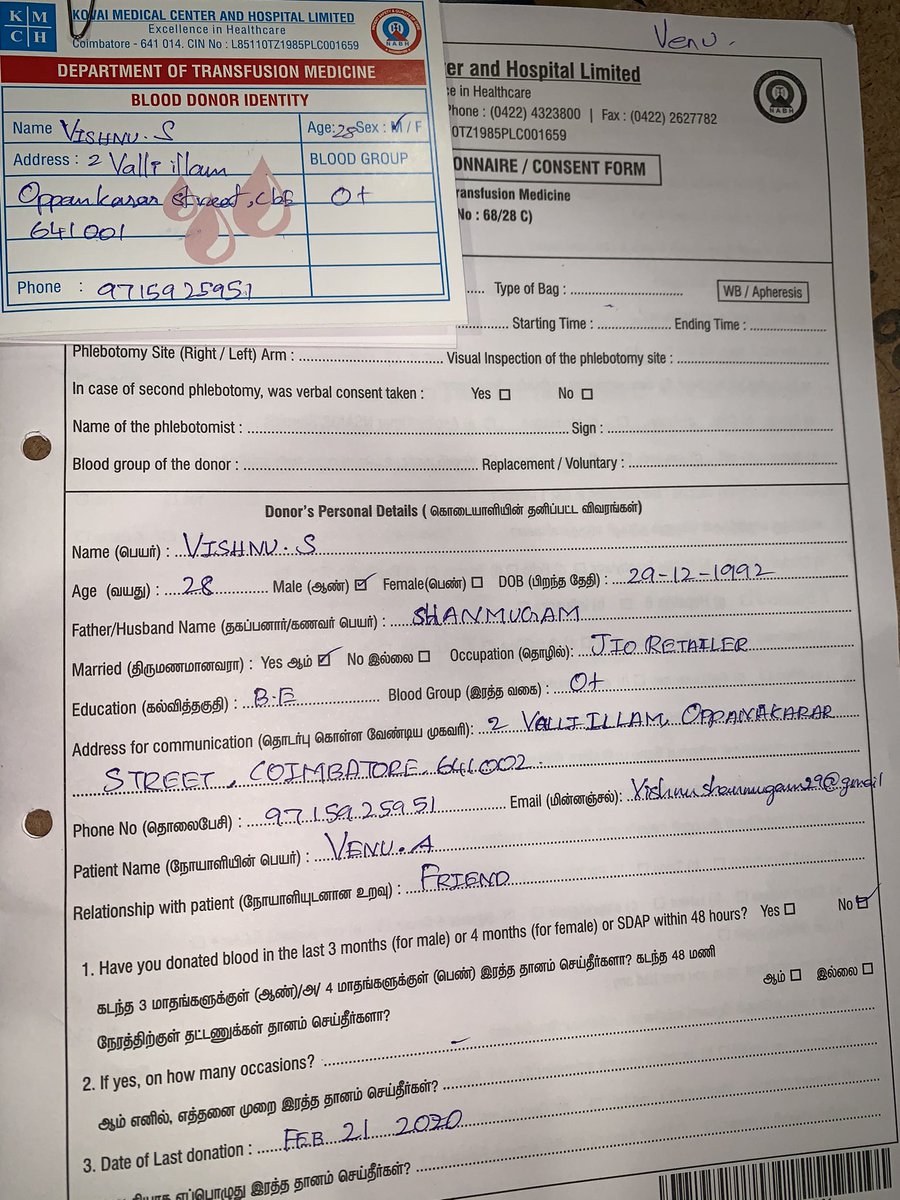 K M
C H
KOVAI MEDICAL CENTER AND HOSPITAL LIMITED
Excellence in Healthcare
Coimbatore - 641 014. CIN No : L85110TZ1985PLC001659
NABH
DEPARTMENT OF TRANSFUSION MEDICINE
BLOOD DONOR IDENTITY
Name VISHNU. S Age: 28 Sex : M / F
Address : 2 Valli illam BLOOD GROUP
Oppankarar street, cbe O+
641001
Phone : 9715925951
Venu.
er and Hospital Limited
ce in Healthcare
Phone : (0422) 4323800 | Fax : (0422) 2627782
0TZ1985PLC001659
NABH
ONNAIRE / CONSENT FORM
ransfusion Medicine
No : 68/28 C)
Type of Bag : WB / Apheresis
Starting Time : Ending Time :
Phlebotomy Site (Right / Left) Arm : Visual Inspection of the phlebotomy site :
In case of second phlebotomy, was verbal consent taken : Yes No
Name of the phlebotomist : Sign :
Blood group of the donor : Replacement / Voluntary :
Donor's Personal Details ( கொடையாளியின் தனிப்பட்ட விவரங்கள்)
Name (பெயர்) : VISHNU. S
Age (வயது) : 28 Male (ஆண்) Female(பெண்) DOB (பிறந்த தேதி) : 29-12-1992
Father/Husband Name (தகப்பனார்/கணவர் பெயர்) : SHANMUGAM
Married (திருமணமானவரா) : Yes ஆம் No இல்லை Occupation (தொழில்): JIO RETAILER
Education (கல்வித்தகுதி) : B.E Blood Group (இரத்த வகை) : O+
Address for communication (தொடர்பு கொள்ள வேண்டிய முகவரி): 2 VALLI ILLAM, OPPANAKARAR
STREET, COIMBATORE. 641002.
Phone No (தொலைபேசி) : 9715925951 Email (மின்னஞ்சல்): Vishnushanmugam29@gmail
Patient Name (நோயாளியின் பெயர்) : VENU. A
Relationship with patient (நோயாளியுடனான உறவு) : FRIEND
1. Have you donated blood in the last 3 months (for male) or 4 months (for female) or SDAP within 48 hours? Yes No
கடந்த 3 மாதங்களுக்குள் (ஆண்)/அ/ 4 மாதங்களுக்குள் (பெண்) இரத்த தானம் செய்தீர்களா? கடந்த 48 மணி
நேரத்திற்குள் தட்டணுக்கள் தானம் செய்தீர்களா? ஆம் இல்லை
2. If yes, on how many occasions? -
ஆம் எனில், எத்தனை முறை இரத்த தானம் செய்தீர்கள்?
3. Date of Last donation : FEB 21 2020
எப்பொழுது இரத்த தானம் செய்தீர்கள்?